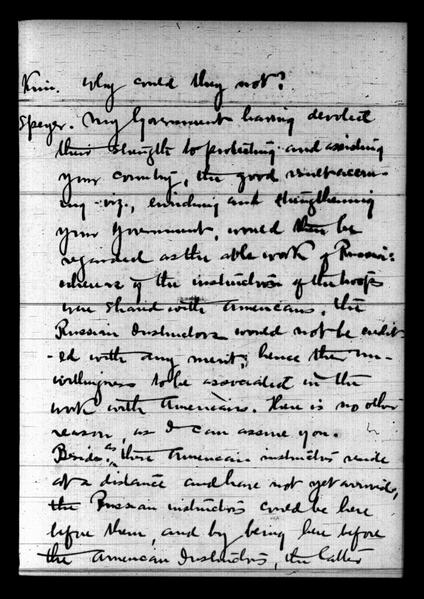 Kim. Why could they not?
Speyer. My Government having devoted
their strength to protecting and assisding
your country, the good
ing viz., enriching and strengthening
your Government, would then be
regarded as the able work of Russia:
whereas if the instruction of the troops
were shared with Americans, the
Russian Instructors would not be credit-
-ed with any merit; hence the un-
willingness to be associated in the
work with Americans. There is no other
reason, as I can assure you.
Besides, as those American instructors reside
at a distance and have not yet arrived,
the Russian instructors could be here
before them, and by being here before
the American Instructors, the latter